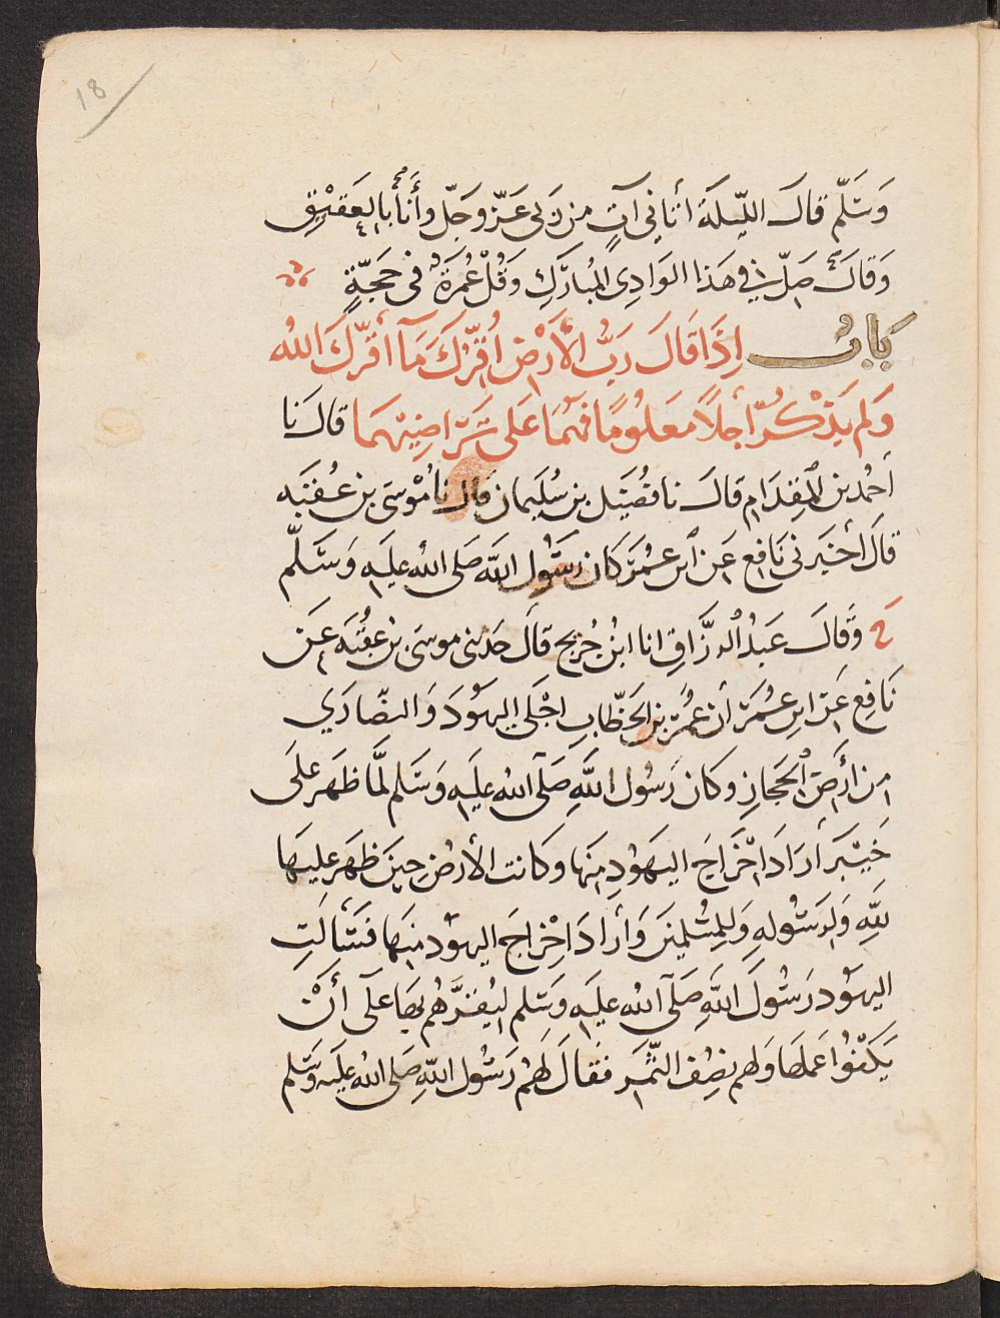 18
وَسَلَّم قالَ اللَّيلَةَ أتاني آتٍ من رَبي عَزّ وجَلّ وأَنَا بالعَقيْقِ
وَقالَ صَلّ في هَذا الوَادِى المُبَارَكِ وَقُلْ عُمْرَةٌ فى حَجّةٍ
بَابُ إِذَا قَالَ رَبُّ الأَرْضِ أُقِرُّكَ مَا أقَرَّكَ اللهُ
وَلم يَذْكُرْ أجَلًا مَعلُومًا فهُمَا عَلى تَرَاضِيْهِمَا قالَ نَا
أحمدُ بن المِقدَامِ قالَ نا فُضَيل بن سُلَيمان قال نا مُوْسَى بن عُقبَه
قالَ أخبَرنى نَافِع عَن ابن عُمَرَ كان رَسُول الله صَلى الله عليه وَسَلَّم
ح وَقالَ عَبدُ الرزَّاقِ انا ابْنُ جُرَيجٍ قالَ حَدثنى موسَى بن عقْبَه عَن
نَافِعٍ عَن ابن عُمَرَ أن عُمَرَ بن الخَطّابِ اجْلَى اليهُوْدَ وَالنصَّارَي
من أَرْضِ الحجَازِ وكان رَسُول اللهِ صَلّى الله عليه وَسَلم لَمَّا ظهَر عَلَى
خَيْبَرَ أرَادَ اخْرَاجَ اليهُوْدِ مِنهَا وكانت الأرْضُ حِينَ ظهَرَ عليهَا
للّهِ وَلِرَسُولِهِ وَلِلمُسْلمِينَ وَأرَادَ اخْرَاجَ اليهوْد منهَا فَسَأَلَتِ
اليهوْد رَسُولَ اللهِ صَلّى الله عليه وَسَلم ليُقِرَّهُم بهَا عَلَى أنْ
يَكفُوا عَملهَا وَلهم نِصْف الثَّمَر فَقالَ لَهُم رَسُول اللهِ صَلى الله عليه وَسَلم